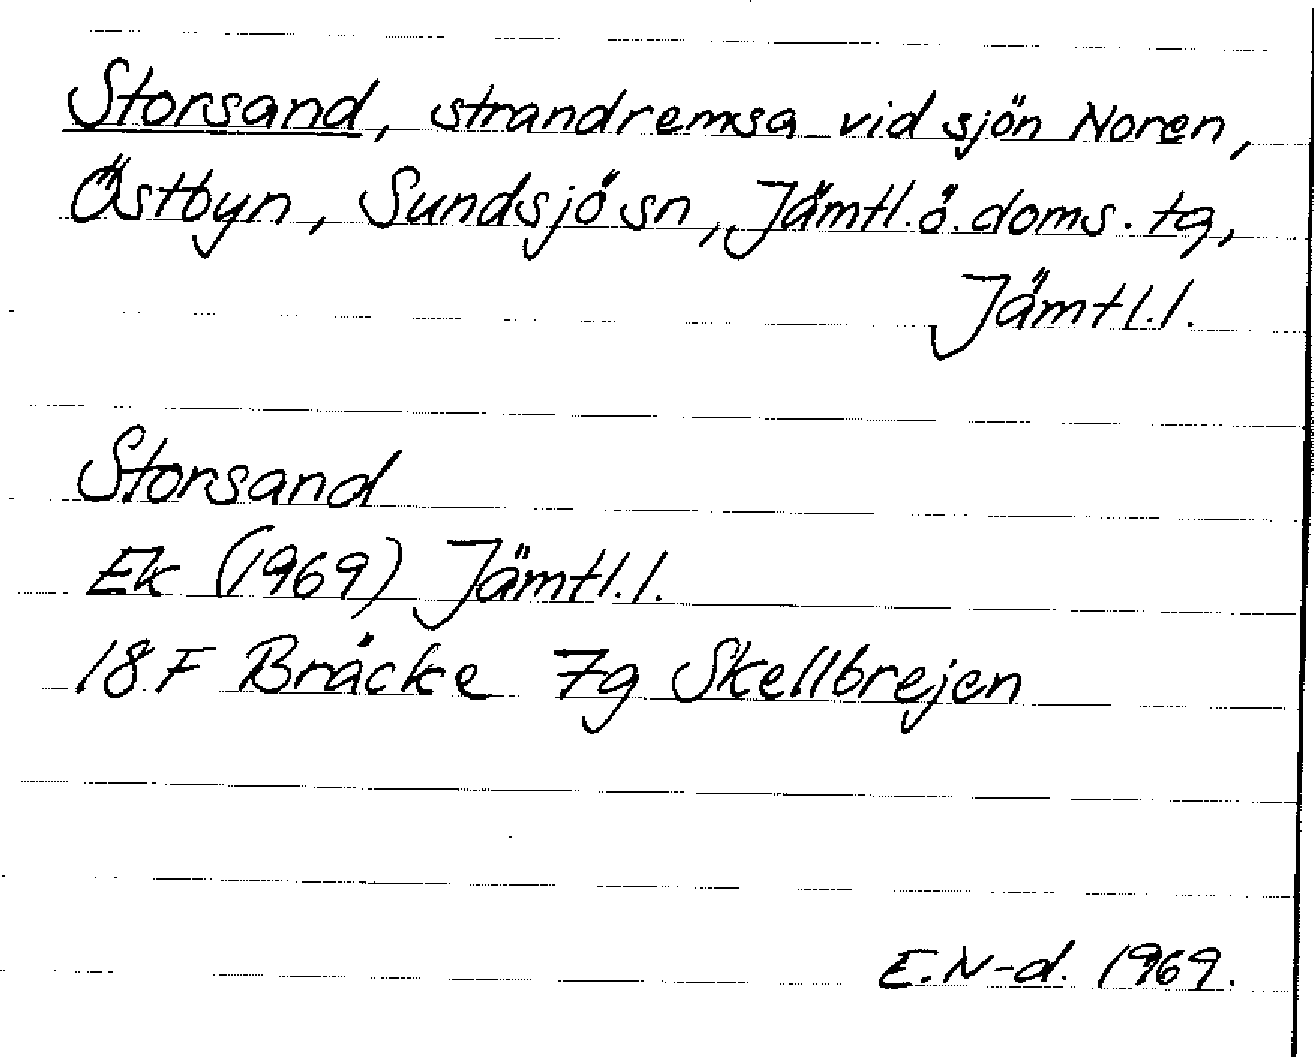 Storsand, strandremsa vid sjön Noren,
Östbyn, Sundsjö sn, Jämtl.ö.doms.tg,
Jämtl.l.
Storsand
Ek (1969) Jämtl.l.
18 F Bräcke 7g Skellbrejen
E.N-d. 1969.